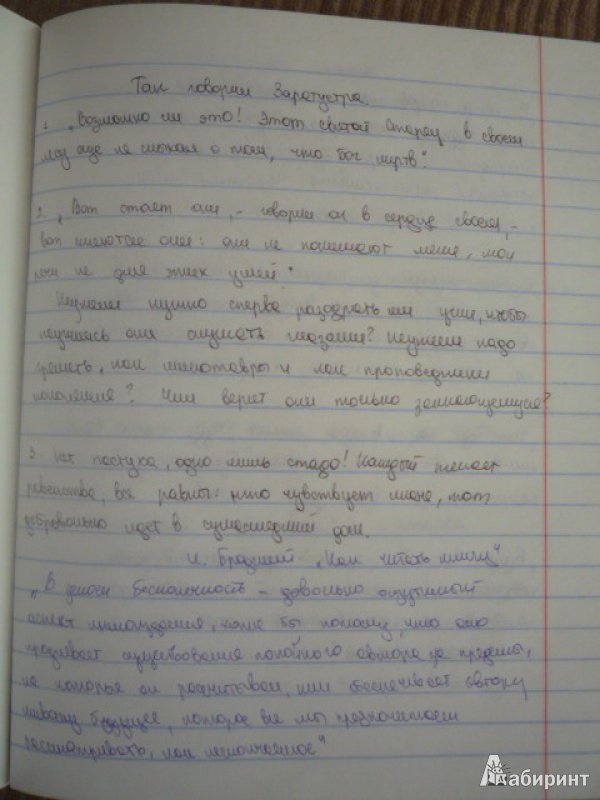 Так говорил Заратустра
1. „Возможно ли это! Этот святой старец в своем
лесу еще не слыхал о том, что бог мертв".
2. „Вот стоят они, - говорил он в сердце своем, -
вот смеются они: они не понимают меня, мои
речи не для этих ушей."
Неужели нужно сперва разодрать им уши, чтобы
научились они слушать глазами? Неужели надо
греметь, как литавры и как проповедники
покаяния? Или верят они только заикающемуся?
3. Нет пастуха, одно лишь стадо! Каждый желает
равенства, все равны: кто чувствует иначе, тот
добровольно идет в сумасшедший дом.
И. Бродский - „Как читать книгу"
„В целом бесконечность - довольно ощутимый
аспект книгоиздания, хотя бы потому, что оно
существование покойного автора за пределы,
на которые он рассчитывал, или обеспечивает автору
живому будущее, которое все мы предпочитаем
рассматривать, как нескончаемое"
Лабиринт